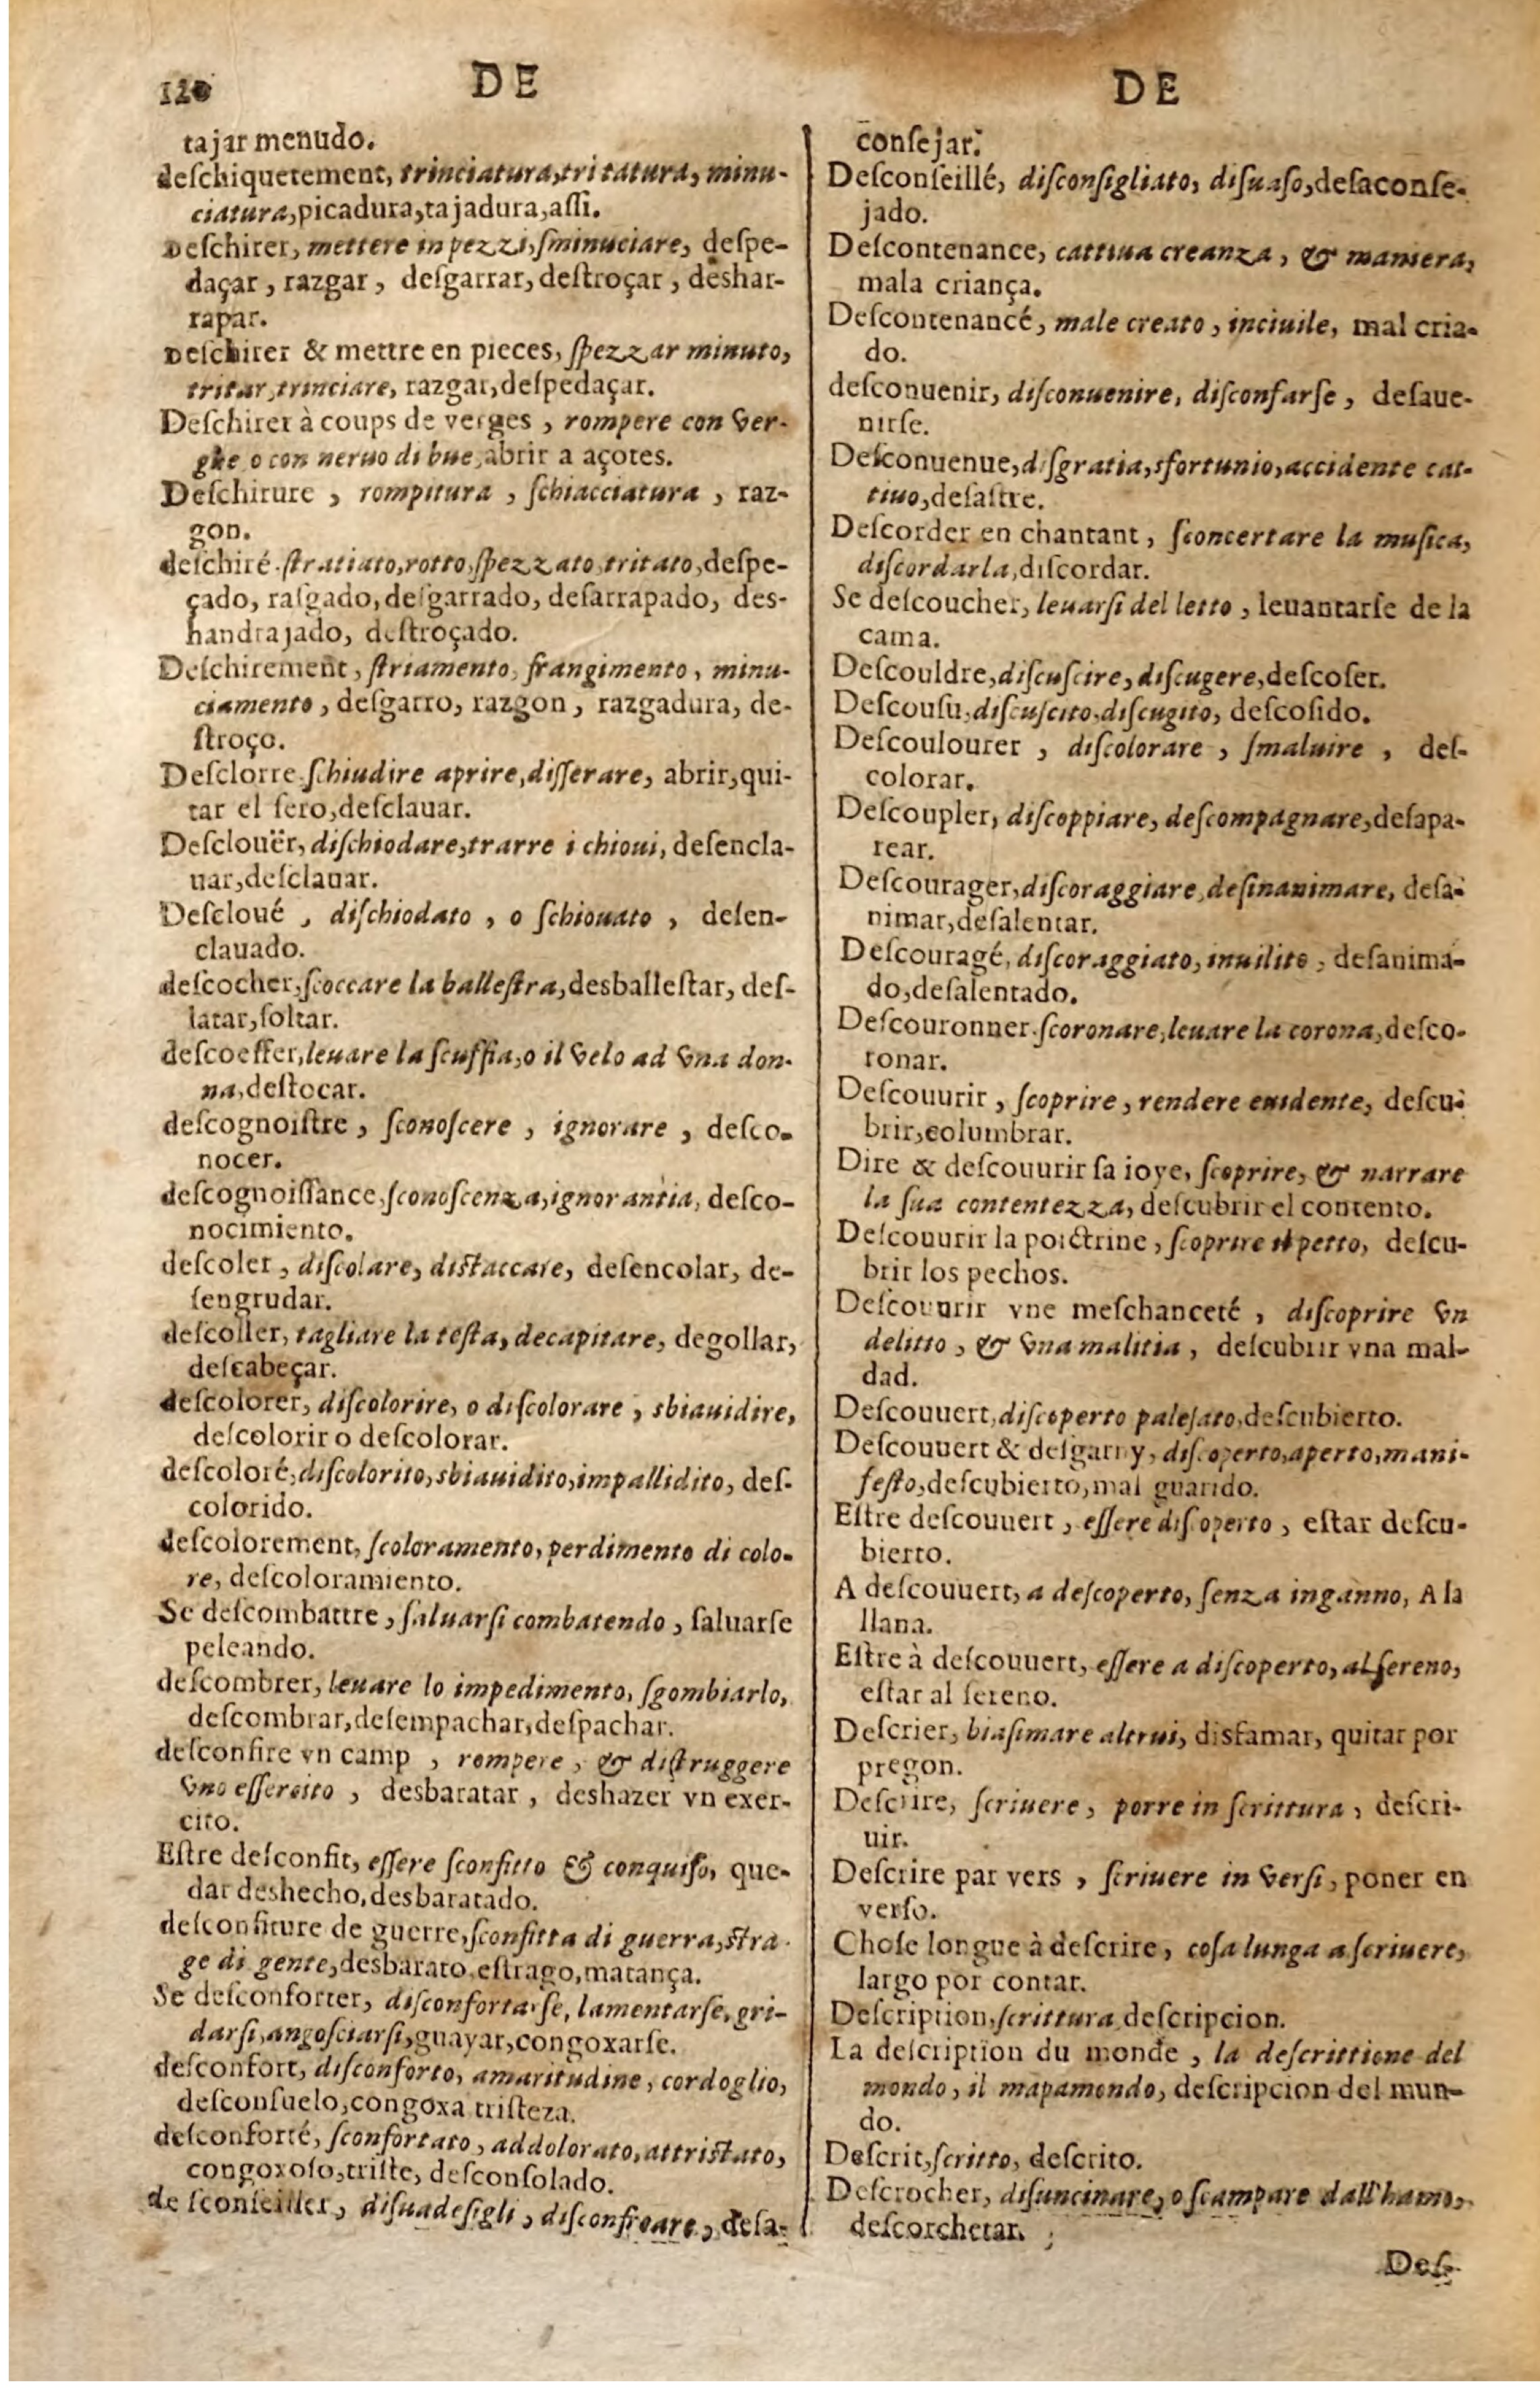 120 DE
DE
tajar menudo.
deſchiquetement, trinciatura, tritatura, minu-
ciatura, picadura, tajadura, aſſi.
Deſchirer, mettere in pezzi, ſminuciare, deſpe-
daçar, razgar, deſgarrar, deſtroçar, deshar-
rapar.
Deſchirer & mettre en pieces, ſpezzar minuto,
tritar, trinciare, razgar, deſpedaçar.
Deſchirer à coups de verges, rompere con ver-
ghe o con neruo di bue, abrir a açotes.
Deſchirure, rompitura, ſchiacciatura, raz-
gon.
deſchiré. ſtratiato, rotto, ſpezzato, tritato, deſpe-
çado, raſgado, deſgarrado, deſarrapado, des-
handrajado, deſtroçado.
Deſchirement, ſtriamento, frangimento, minu-
ciamento, deſgarro, razgon, razgadura, de-
ſtroço.
Deſclorre ſchiudire aprire, diſſerare, abrir, qui-
tar el ſero, deſclauar.
Deſclouër, diſchiodare, trarre i chioui, deſencla-
uar, deſclauar.
Deſcloué, diſchiodato, o ſchiouato, deſen-
clauado.
deſcocher, ſcoccare la balleſtra, desballeſtar, deſ-
latar, ſoltar.
deſcoeffer, leuare la ſcuffia, o il velo ad vna don-
na, deſtocar.
deſcognoiſtre, ſconoſcere, ignorare, deſco-
nocer.
deſcognoiſſance, ſconoſcenza, ignorantia, deſco-
nocimiento.
deſcoler, diſcolare, diſtaccare, deſencolar, de-
ſengrudar.
deſcoller, tagliare la teſta, decapitare, degollar,
deſcabeçar.
deſcolorer, diſcolorire, o diſcolorare, sbiauidire,
deſcolorir o deſcolorar.
deſcoloré, diſcolorito, sbiauidito, impallidito, deſ-
colorido.
deſcolorement, ſcoloramento, perdimento di colo-
re, deſcoloramiento.
Se deſcombattre, ſaluarſi combatendo, ſaluarſe
peleando.
deſcombrer, leuare lo impedimento, ſgombiarlo,
deſcombrar, deſempachar, deſpachar.
deſconfire vn camp, rompere, & diſtruggere
vno eſſercito, desbaratar, deshazer vn exer-
cito.
Eſtre deſconfit, eſſere ſconfitto & conquiſo, que-
dar deshecho, desbaratado.
deſconfiture de guerre, ſconfitta di guerra, ſtra-
ge di gente, desbarato, eſtrago, matança.
Se deſconforter, diſconfortarſe, lamentarſe, gri-
darſi, angoſciarſi, guayar, congoxarſe.
deſconfort, diſconforto, amaritudine, cordoglio,
deſconſuelo, congoxa triſteza.
deſconforté, ſconfortato, addolorato, attriſtato,
congoxoſo, triſte, deſconſolado.
deſconſeiller, diſuadeſigli, deſa-
conſejar.
Deſconſeillé, diſconſigliato, diſuaſo, deſaconſe-
jado.
Deſcontenance, cattiua creanza, & maniera,
mala criança.
Deſcontenancé, male creato, inciuile, mal cria-
do.
deſconuenir, diſconuenire, diſconfarſe, deſaue-
nirſe.
Deſconuenue, diſgratia, sfortunio, accidente cat-
tiuo, deſaſtre.
Deſcorder en chantant, ſconcertare la muſica,
diſcordarla, diſcordar.
Se deſcoucher, leuarſi del letto, leuantarſe de la
cama.
Deſcouldre, diſcuſcire, diſcugere, deſcoſer.
Deſcouſu, diſcuſcito, diſcugito, deſcoſido.
Deſcoulourer, diſcolorare, ſmaluire, deſ-
colorar.
Deſcoupler, diſcoppiare, deſcompagnare, deſapa-
rear.
Deſcourager, diſcoraggiare, deſinanimare, deſa-
nimar, deſalentar.
Deſcouragé, diſcoraggiato, inuilito, deſanima-
do, deſalentado.
Deſcouronner. ſcoronare, leuare la corona, deſco-
ronar.
Deſcouurir, ſcoprire, rendere euidente, deſcu-
brir, columbrar.
Dire & deſcouurir ſa ioye, ſcoprire, & narrare
la ſua contentezza, deſcubrir el contento.
Deſcouurir la poictrine, ſcoprire il petto, deſcu-
brir los pechos.
Deſcouurir vne meſchanceté, diſcoprire vn
delitto, & vna malitia, deſcubrir vna mal-
dad.
Deſcouuert, diſcoperto paleſato, deſcubierto.
Deſcouuert & deſgarny, diſcoperto, aperto, mani-
feſto, deſcubierto, mal guarido.
Eſtre deſcouuert, eſſere diſcoperto, eſtar deſcu-
bierto.
A deſcouuert, a deſcoperto, ſenza inganno, A la
llana.
Eſtre à deſcouuert, eſſere a diſcoperto, al ſereno,
eſtar al ſereno.
Deſcrier, biaſimare altrui, disfamar, quitar por
pregon.
Deſcrire, ſcriuere, porre in ſcrittura, deſcri-
uir.
Deſcrire par vers, ſcriuere in verſi, poner en
verſo.
Choſe longue à deſcrire, coſa lunga a ſcriuere,
largo por contar.
Deſcription, ſcrittura, deſcripcion.
La deſcription du monde, la deſcrittione del
mondo, il mapamondo, deſcripcion del mun-
do.
Deſcrit, ſcritto, deſcrito.
Deſcrocher, diſuncinare, o ſcampare dall'hamo,
deſcorchetar.
Deſ-